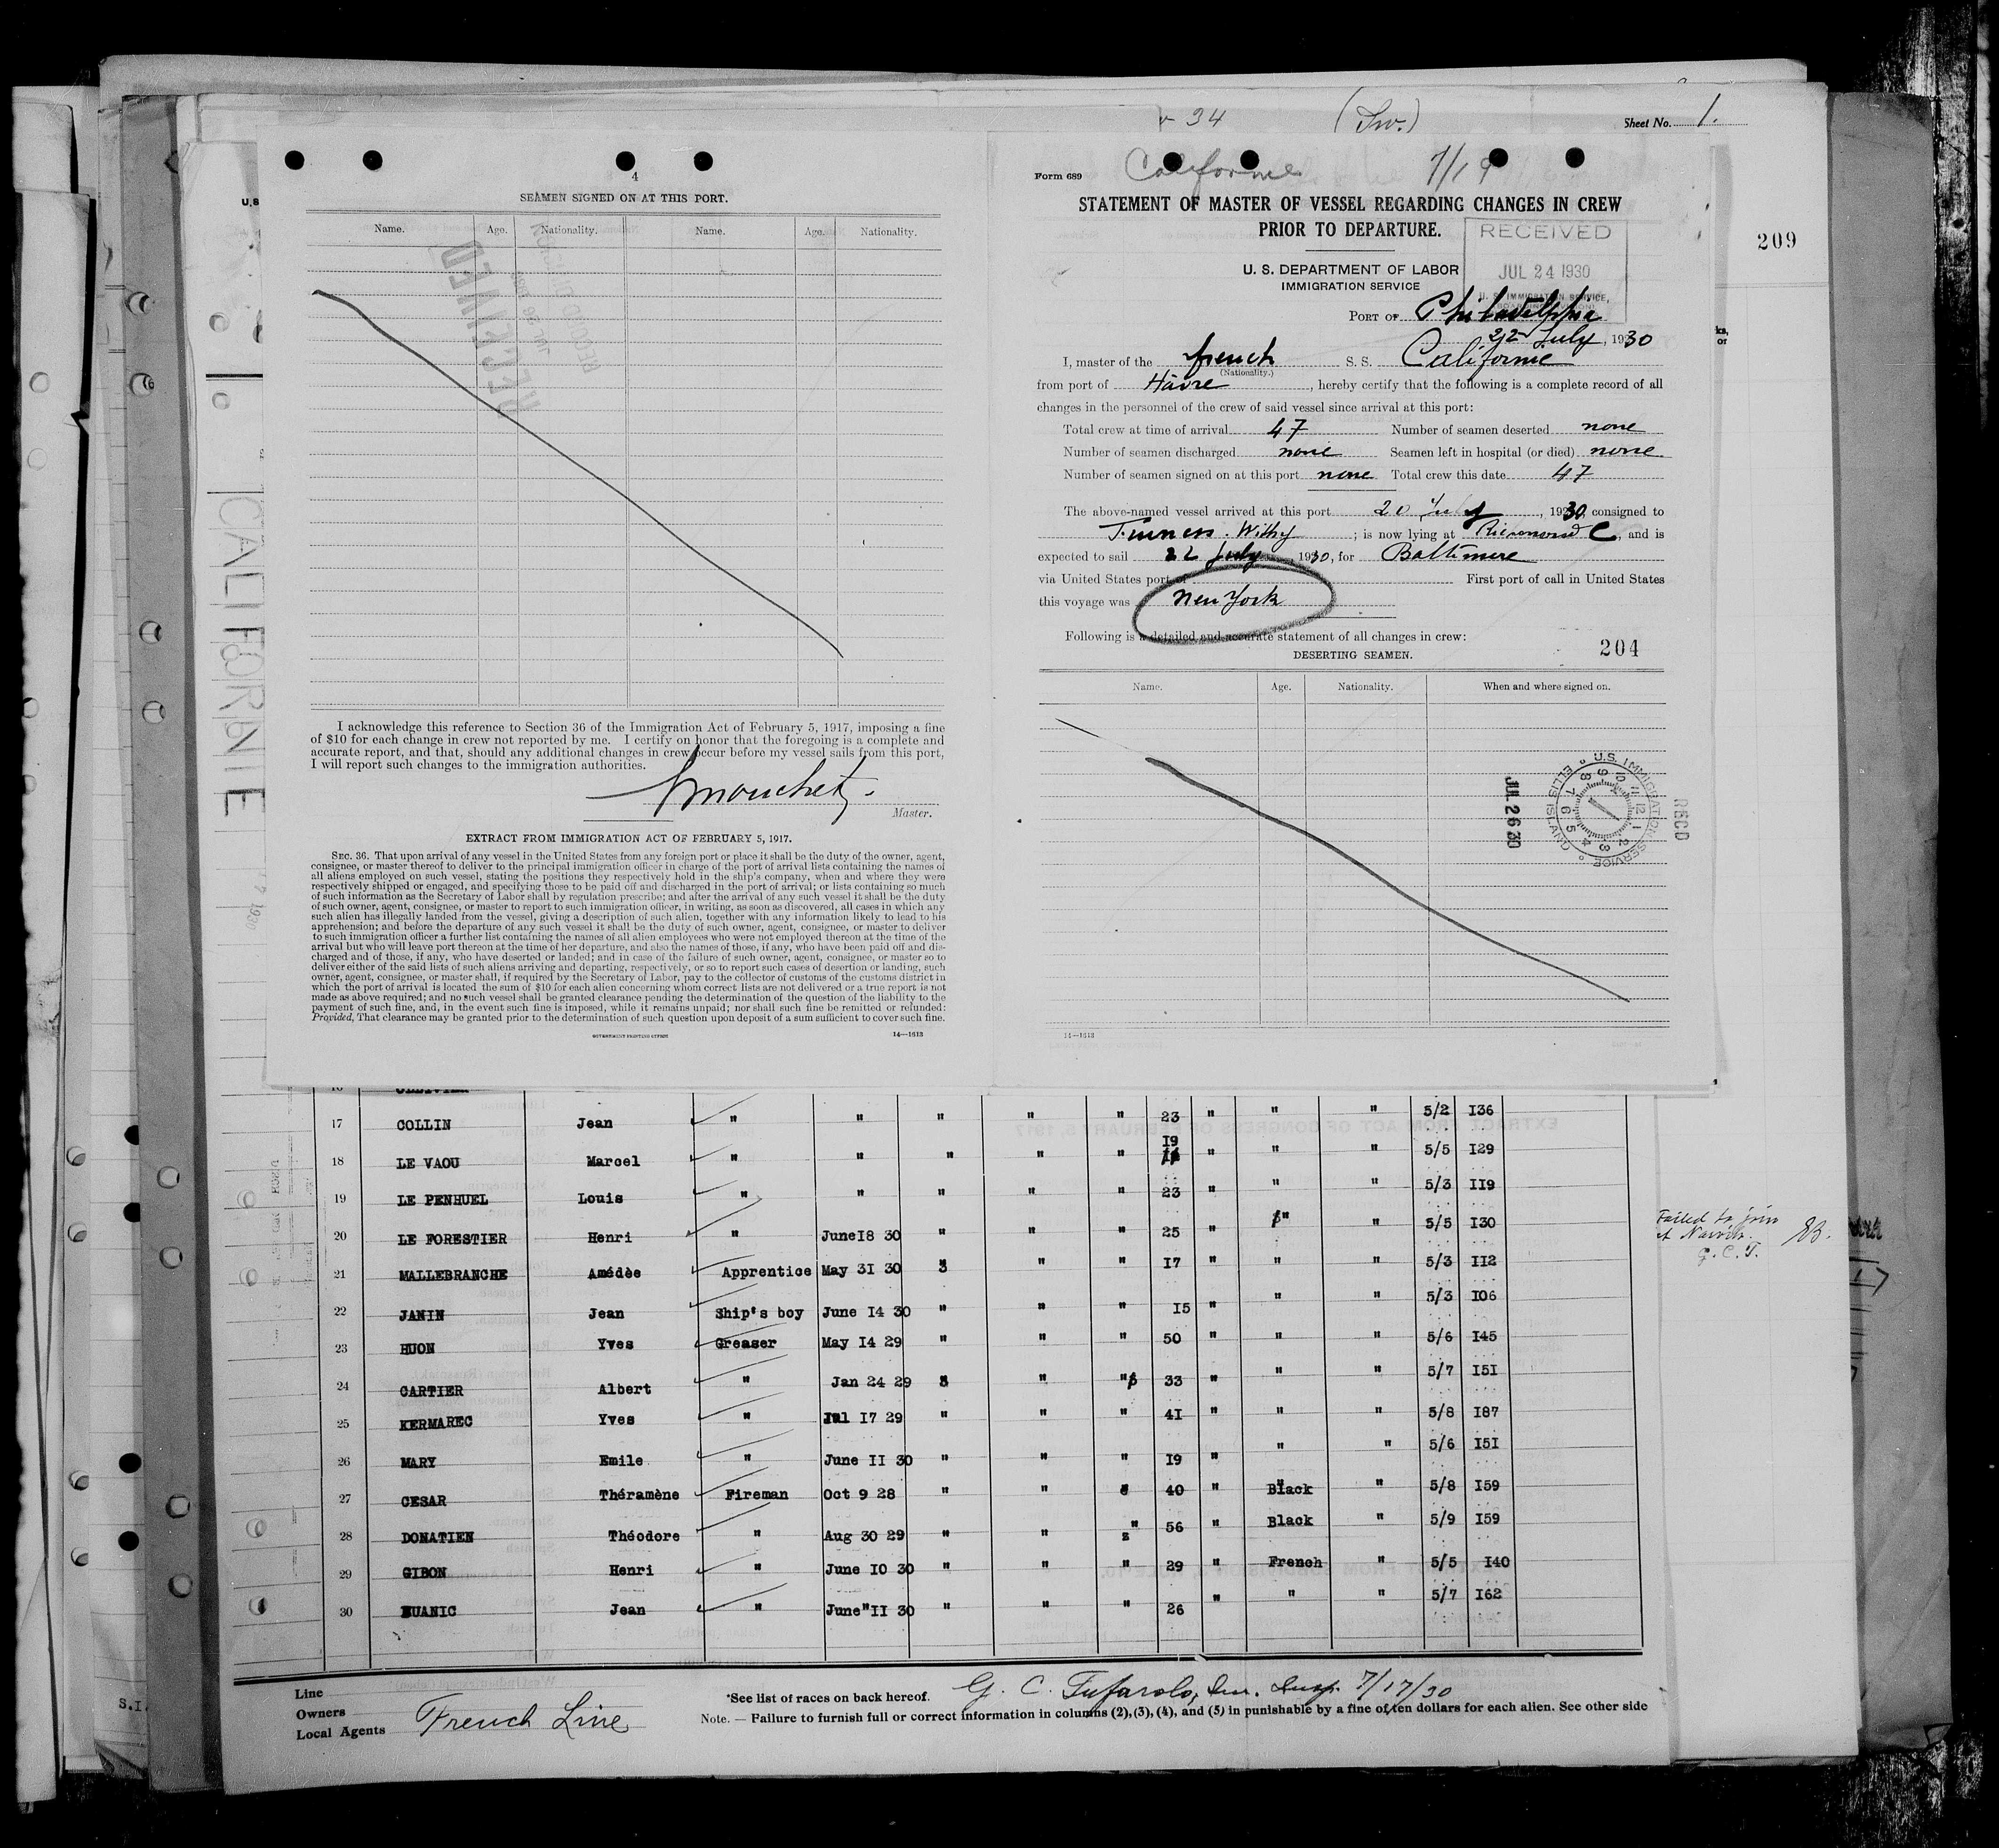 34 (Inv.) Sheet No. 1.
4
SEAMEN SIGNED ON AT THIS PORT.
Name. Age. Nationality. Name. Age. Nationality.
RECEIVED
I acknowledge this reference to Section 36 of the Immigration Act of February 5, 1917, imposing a fine
of $10 for each change in crew not reported by me. I certify on honor that the foregoing is a complete and
accurate report, and that, should any additional changes in crew occur before my vessel sails from this port,
I will report such changes to the immigration authorities.
Master.
EXTRACT FROM IMMIGRATION ACT OF FEBRUARY 5, 1917.
SEC. 36. That upon arrival of any vessel in the United States from any foreign port or place it shall be the duty of the owner, agent,
consignee, or master thereof to deliver to the principal immigration officer in charge of the port of arrival lists containing the names of
all aliens employed on such vessel, stating the positions they respectively hold in the ship's company, when and where they were
respectively shipped or engaged, and specifying those to be paid off and discharged in the port of arrival; or lists containing so much
of such information as the Secretary of Labor shall by regulation prescribe; and after the arrival of any such vessel it shall be the duty
of such owner, agent, consignee, or master to report to such immigration officer, in writing, as soon as discovered, all cases in which any
such alien has illegally landed from the vessel, giving a description of such alien, together with any information likely to lead to his
apprehension; and before the departure of any such vessel it shall be the duty of such owner, agent, consignee, or master to deliver
to such immigration officer a further list containing the names of all alien employees who were not employed thereon at the time of the
arrival but who will leave port thereon at the time of her departure, and also the names of those, if any, who have been paid off and dis-
charged and of those, if any, who have deserted or landed; and in case of the failure of such owner, agent, consignee, or master so to
deliver either of the said lists of such aliens arriving and departing, respectively, or so to report such cases of desertion or landing, such
owner, agent, consignee, or master shall, if required by the Secretary of Labor, pay to the collector of customs of the customs district in
which the port of arrival is located the sum of $10 for each alien concerning whom correct lists are not delivered or a true report is not
made as above required; and no such vessel shall be granted clearance pending the determination of the question of the liability to the
payment of such fine, and, in the event such fine is imposed, while it remains unpaid; nor shall such fine be remitted or refunded:
Provided, That clearance may be granted prior to the determination of such question upon deposit of a sum sufficient to cover such fine.
GOVERNMENT PRINTING OFFICE 14—1613
Californie 7/19
Form 689
STATEMENT OF MASTER OF VESSEL REGARDING CHANGES IN CREW
PRIOR TO DEPARTURE.
RECEIVED
JUL 24 1930
U. S. IMMIGRATION SERVICE,
U. S. DEPARTMENT OF LABOR
IMMIGRATION SERVICE
PORT OF Philadelphia
22 July, 1930
I, master of the french S. S. Californie
(Nationality.)
from port of Havre, hereby certify that the following is a complete record of all
changes in the personnel of the crew of said vessel since arrival at this port:
Total crew at time of arrival 47 Number of seamen deserted none
Number of seamen discharged none Seamen left in hospital (or died) none
Number of seamen signed on at this port none Total crew this date 47
The above-named vessel arrived at this port 20 July, 1930, consigned to
Furness. Withy; is now lying at Richmond C, and is
expected to sail 22 July, 1930, for Baltimore
via United States port of First port of call in United States
this voyage was New York
Following is a detailed and accurate statement of all changes in crew:
204
DESERTING SEAMEN.
Name. Age. Nationality. When and where signed on.
JUL 26 30
U.S. IMMIGRATION SERVICE ELLIS ISLAND
REC'D
14—1613
209
U.S
CALIFORNIE
17 COLLIN Jean " " " " " 23 " " " 5/2 I36
18 LE VAOU Marcel " " " " " I9 " " " 5/5 I29
19 LE PENHUEL Louis " " " " " 23 " " " 5/3 II9
20 LE FORESTIER Henri " June I8 30 " " " 25 " " " 5/5 I30
21 MALLEBRANCHE Amédèe Apprentice May 3I 30 3 " " I7 " " " 5/3 II2
22 JANIN Jean Ship's boy June I4 30 " " " I5 " " " 5/3 I06
23 HUON Yves Greaser May I4 29 " " " 50 " " " 5/6 I45
24 CARTIER Albert " Jan 24 29 3 " " 33 " " " 5/7 I5I
25 KERMAREC Yves " Jul I7 29 " " " 4I " " " 5/8 I87
26 MARY Emile " June II 30 " " " I9 " " " 5/6 I5I
27 CESAR Théramène Fireman Oct 9 28 " " 40 " Black " 5/8 I59
28 DONATIEN Théodore " Aug 30 29 " " " 56 " Black " 5/9 I59
29 GIBON Henri " June I0 30 " " " 29 " French " 5/5 I40
30 BUANIC Jean " June II 30 " " " 26 " " " 5/7 I62
Failed to join
at Navire.
G. C. T.
Line
Owners
Local Agents French Line
*See list of races on back hereof. G. C. Tufarolo, Im. Insp. 7/17/30
Note. — Failure to furnish full or correct information in columns (2),(3),(4), and (5) in punishable by a fine of ten dollars for each alien. See other side
S.I.